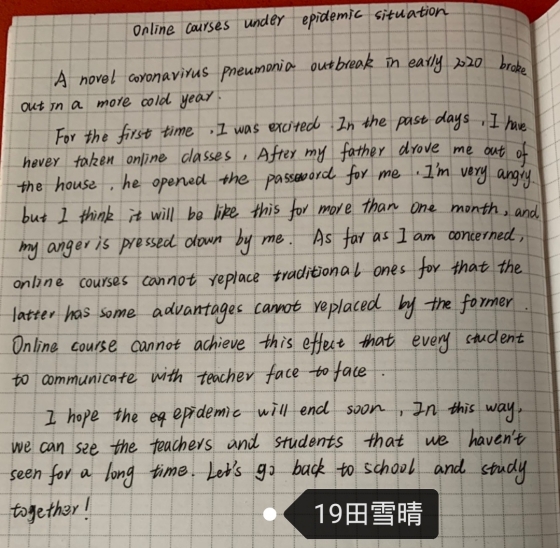 Online courses under epidemic situation
A novel coronavirus pneumonia outbreak in early 2020 broke
out in a more cold year.
For the first time , I was excited . In the past days , I have
never taken online classes , After my father drove me out of
the house , he opened the password for me . I'm very angry
but I think it will be like this for more than one month , and
my anger is pressed down by me . As far as I am concerned ,
online courses cannot replace traditional ones for that the
latter has some advantages cannot replaced by the former .
Online course cannot achieve this effect that every student
to communicate with teacher face to face .
I hope the epidemic will end soon , In this way ,
we can see the teachers and students that we haven't
seen for a long time . Let's go back to school and study
together !
19田雪晴